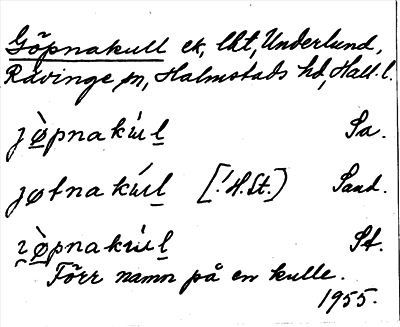 Göpnakull ek, lht, Underlund,
Rävinge sn, Halmstads hd, Hall. l.
jø̀pnakúl̲ Sa.
jøtnakúl̲ [! H. St.] Sand.
ɿø̀pnakúl̲ St.
Förr namn på en kulle.
1955.